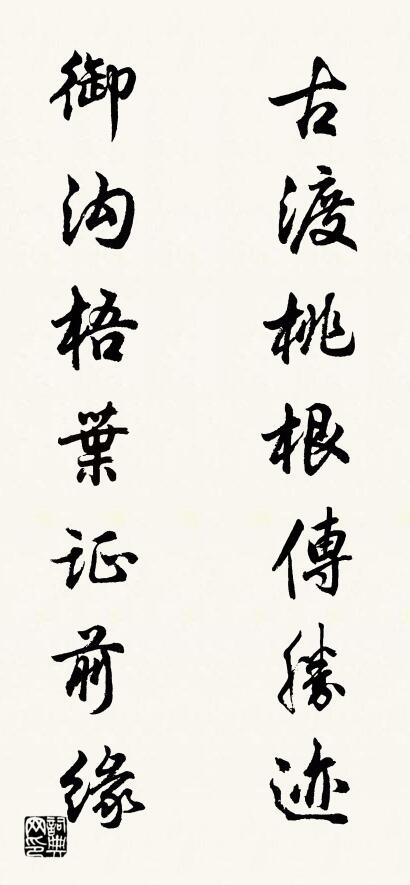 古渡桃根傳勝迹
御沟梧葉证前緣
詞典網印